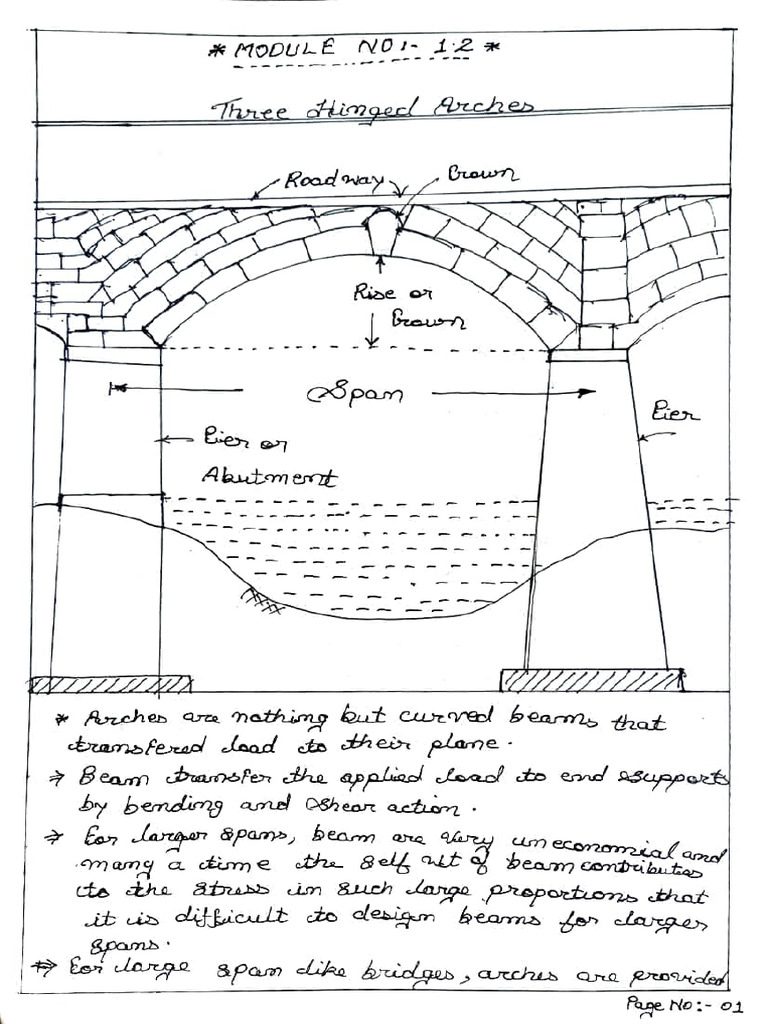 * MODULE NO:- 1.2 *
Three Hinged Arches
Roadway
Crown
Rise or
Crown
Span
Pier
Pier or
Abutment
* Arches are nothing but curved beams that
transfered load to their plane.
→ Beam transfer the applied load to end supports
by bending and shear action.
→ For larger spans, beam are very uneconomial and
many a time the self wt of beam contributes
to the stress in such large proportions that
it is difficult to design beams for larger
spans.
→ For large span like bridges, arches are provided
Page No:- 01